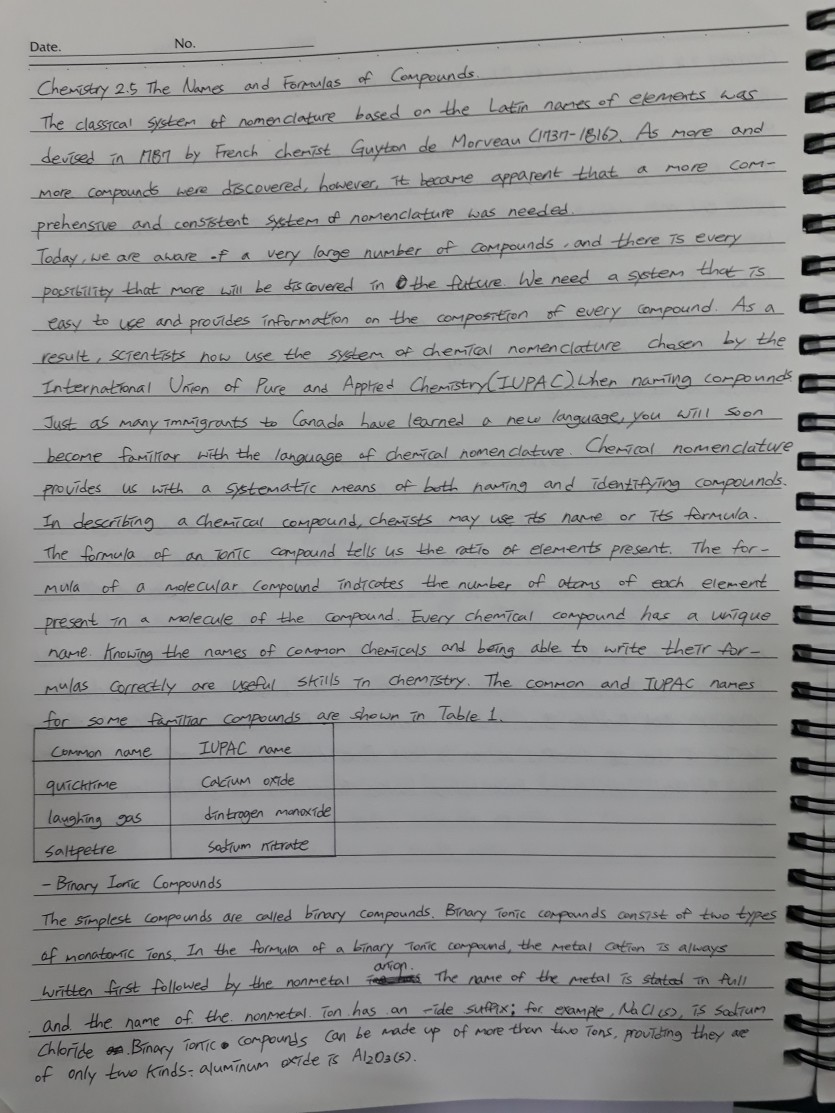 Date. No.
Chemistry 2.5 The Names and Formulas of Compounds.
The classical system of nomenclature based on the Latin names of elements was
devised in 1787 by French chemist Guyton de Morveau (1737-1816). As more and
more compounds were discovered, however, it became apparent that a more com-
prehensive and consistent system of nomenclature was needed.
Today, we are aware of a very large number of compounds, and there is every
possibility that more will be discovered in the future. We need a system that is
easy to use and provides information on the composition of every compound. As a
result, scientists now use the system of chemical nomenclature chosen by the
International Union of Pure and Applied Chemistry(IUPAC) when naming compounds
Just as many immigrants to Canada have learned a new language, you will soon
become familiar with the language of chemical nomenclature. Chemical nomenclature
provides us with a systematic means of both naming and identifying compounds.
In describing a chemical compound, chemists may use its name or its formula.
The formula of an ionic compound tells us the ratio of elements present. The for-
mula of a molecular compound indicates the number of atoms of each element
present in a molecule of the compound. Every chemical compound has a unique
name. Knowing the names of common chemicals and being able to write their for-
mulas correctly are useful skills in chemistry. The common and IUPAC names
for some familiar compounds are shown in Table 1.
Common name IUPAC name
quicklime Calcium oxide
laughing gas dintrogen monoxide
saltpetre sodium nitrate
- Binary Ionic Compounds
The simplest compounds are called binary compounds. Binary ionic compounds consist of two types
of monatomic ions. In the formula of a binary ionic compound, the metal cation is always
written first followed by the nonmetal anion. The name of the metal is stated in full
and the name of the nonmetal ion has an -ide suffix; for example, NaCl(s), is sodium
Chloride Binary ionic compounds can be made up of more than two ions, providing they ae
of only two kinds- aluminum oxide is Al2O3(s).